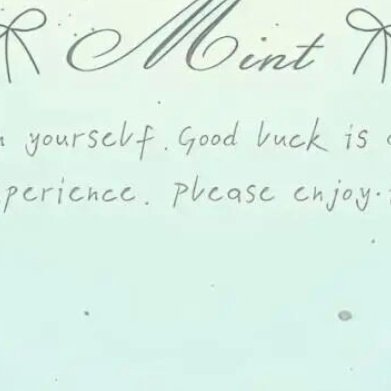 Mint
yourself. Good luck is
perience. Please enjoy.